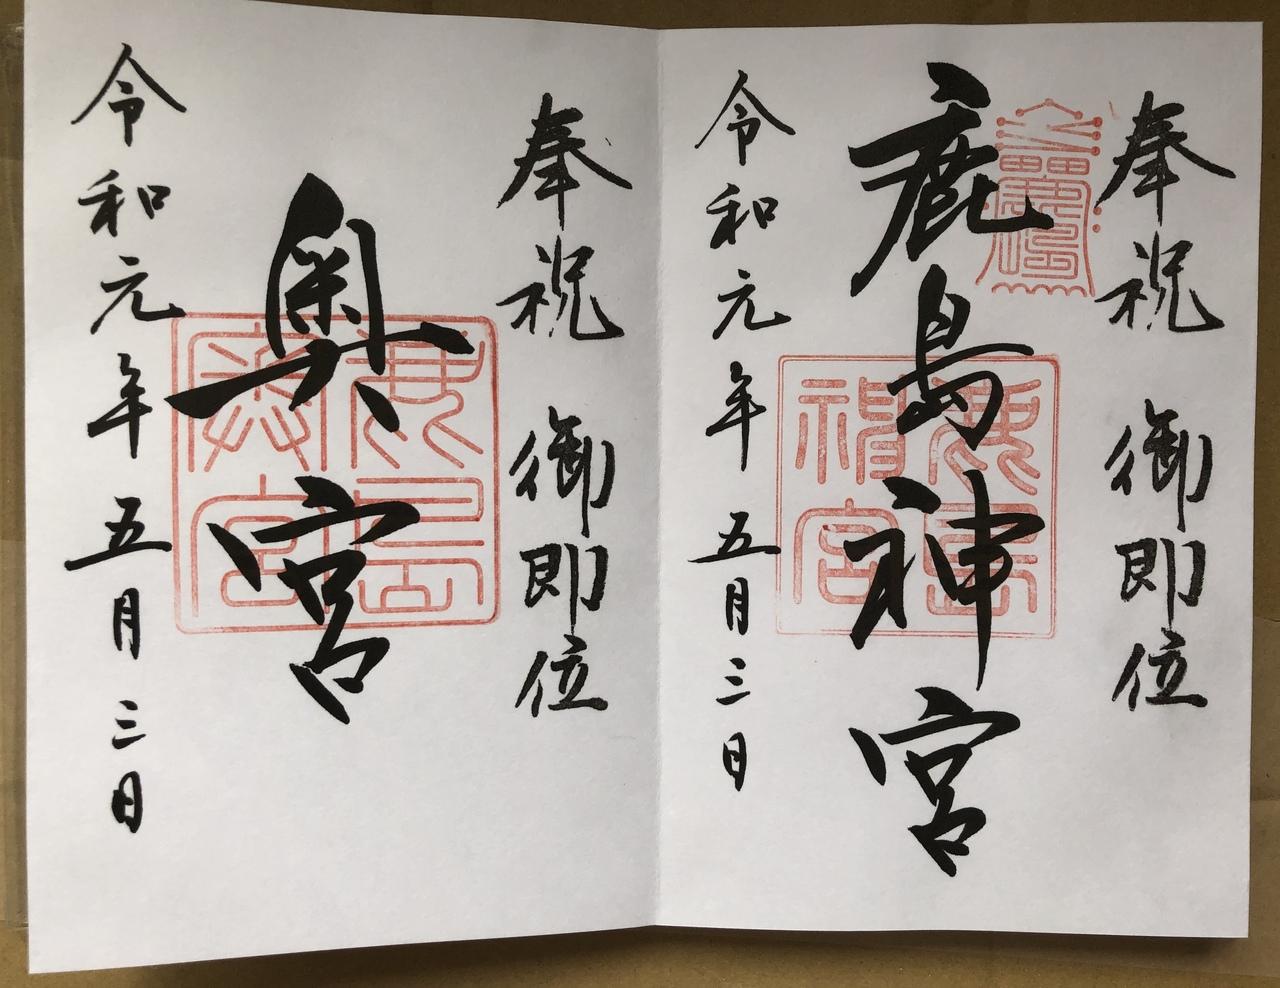 奉祝 御即位
鹿島神宮
令和元年五月三日
鹿島神宮
奉祝 御即位
奥宮
令和元年五月三日